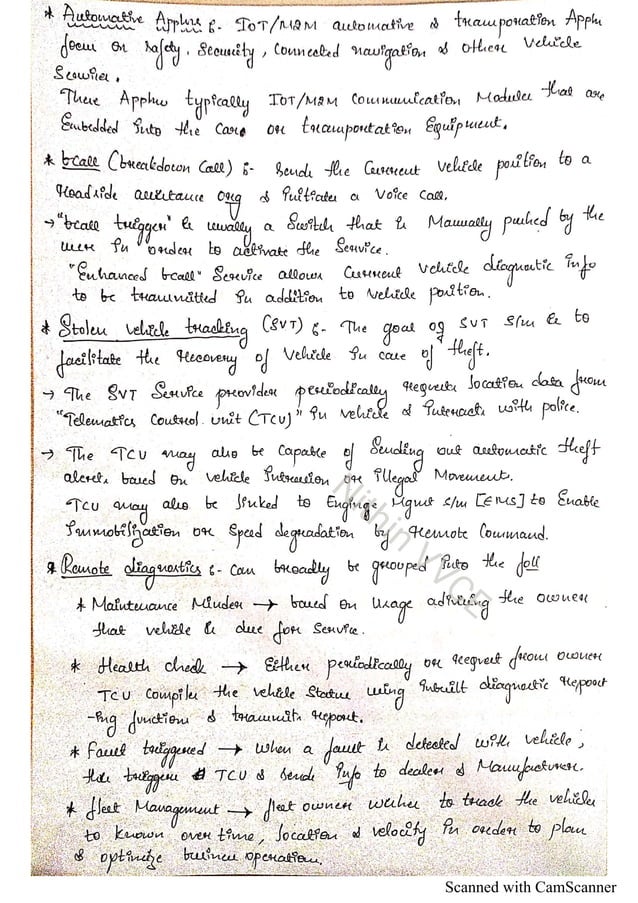 * Automative Applns :- IoT/M2M automative & transporation Appln
focus on safety, Security, Connected navigation & other Vehicle
Services.
These Applns typically IoT/M2M Communication Modules that are
Embedded into the Cars or transportation Equipment.
* bcall (breakdown Call) :- Sends the Current Vehicle position to a
Roadside assistance org & initiates a Voice Call.
→ "bcall trigger" is usually a Switch that is Manually pushed by the
user in order to activate the Service.
"Enhanced bcall" Service allows Current Vehicle diagnostic info
to be transmitted in addition to Vehicle position.
* Stolen vehicle tracking (SVT) :- The goal of SVT S/m is to
facilitate the recovery of Vehicle in case of theft.
→ The SVT Service provider periodically requests location data from
"Telematics Control unit (TCU)" in vehicle & interacts with police.
→ The TCU may also be Capable of Sending out automatic theft
alerts based on vehicle intrusion or illegal Movement.
TCU may also be linked to Enginge Mgmt S/m [EMS] to Enable
Immobilization or Speed degradation by remote Command.
* Remote diagnostics :- Can broadly be grouped into the foll
* Maintenance Minder → based on Usage advising the owner
that vehicle is due for Service.
* Health check → Either periodically or request from owner
TCU Compiles the vehicle Status using inbuilt diagnostic report
-ing function & transmits report.
* Fault triggered → when a fault is detected with vehicle,
this triggers TCU & sends info to dealer & Manufacturer.
* fleet Management → fleet owner wishes to track the vehicles
to known over time, location & velocity in order to plan
& optimize business operation.
Nithin VVCE
Scanned with CamScanner